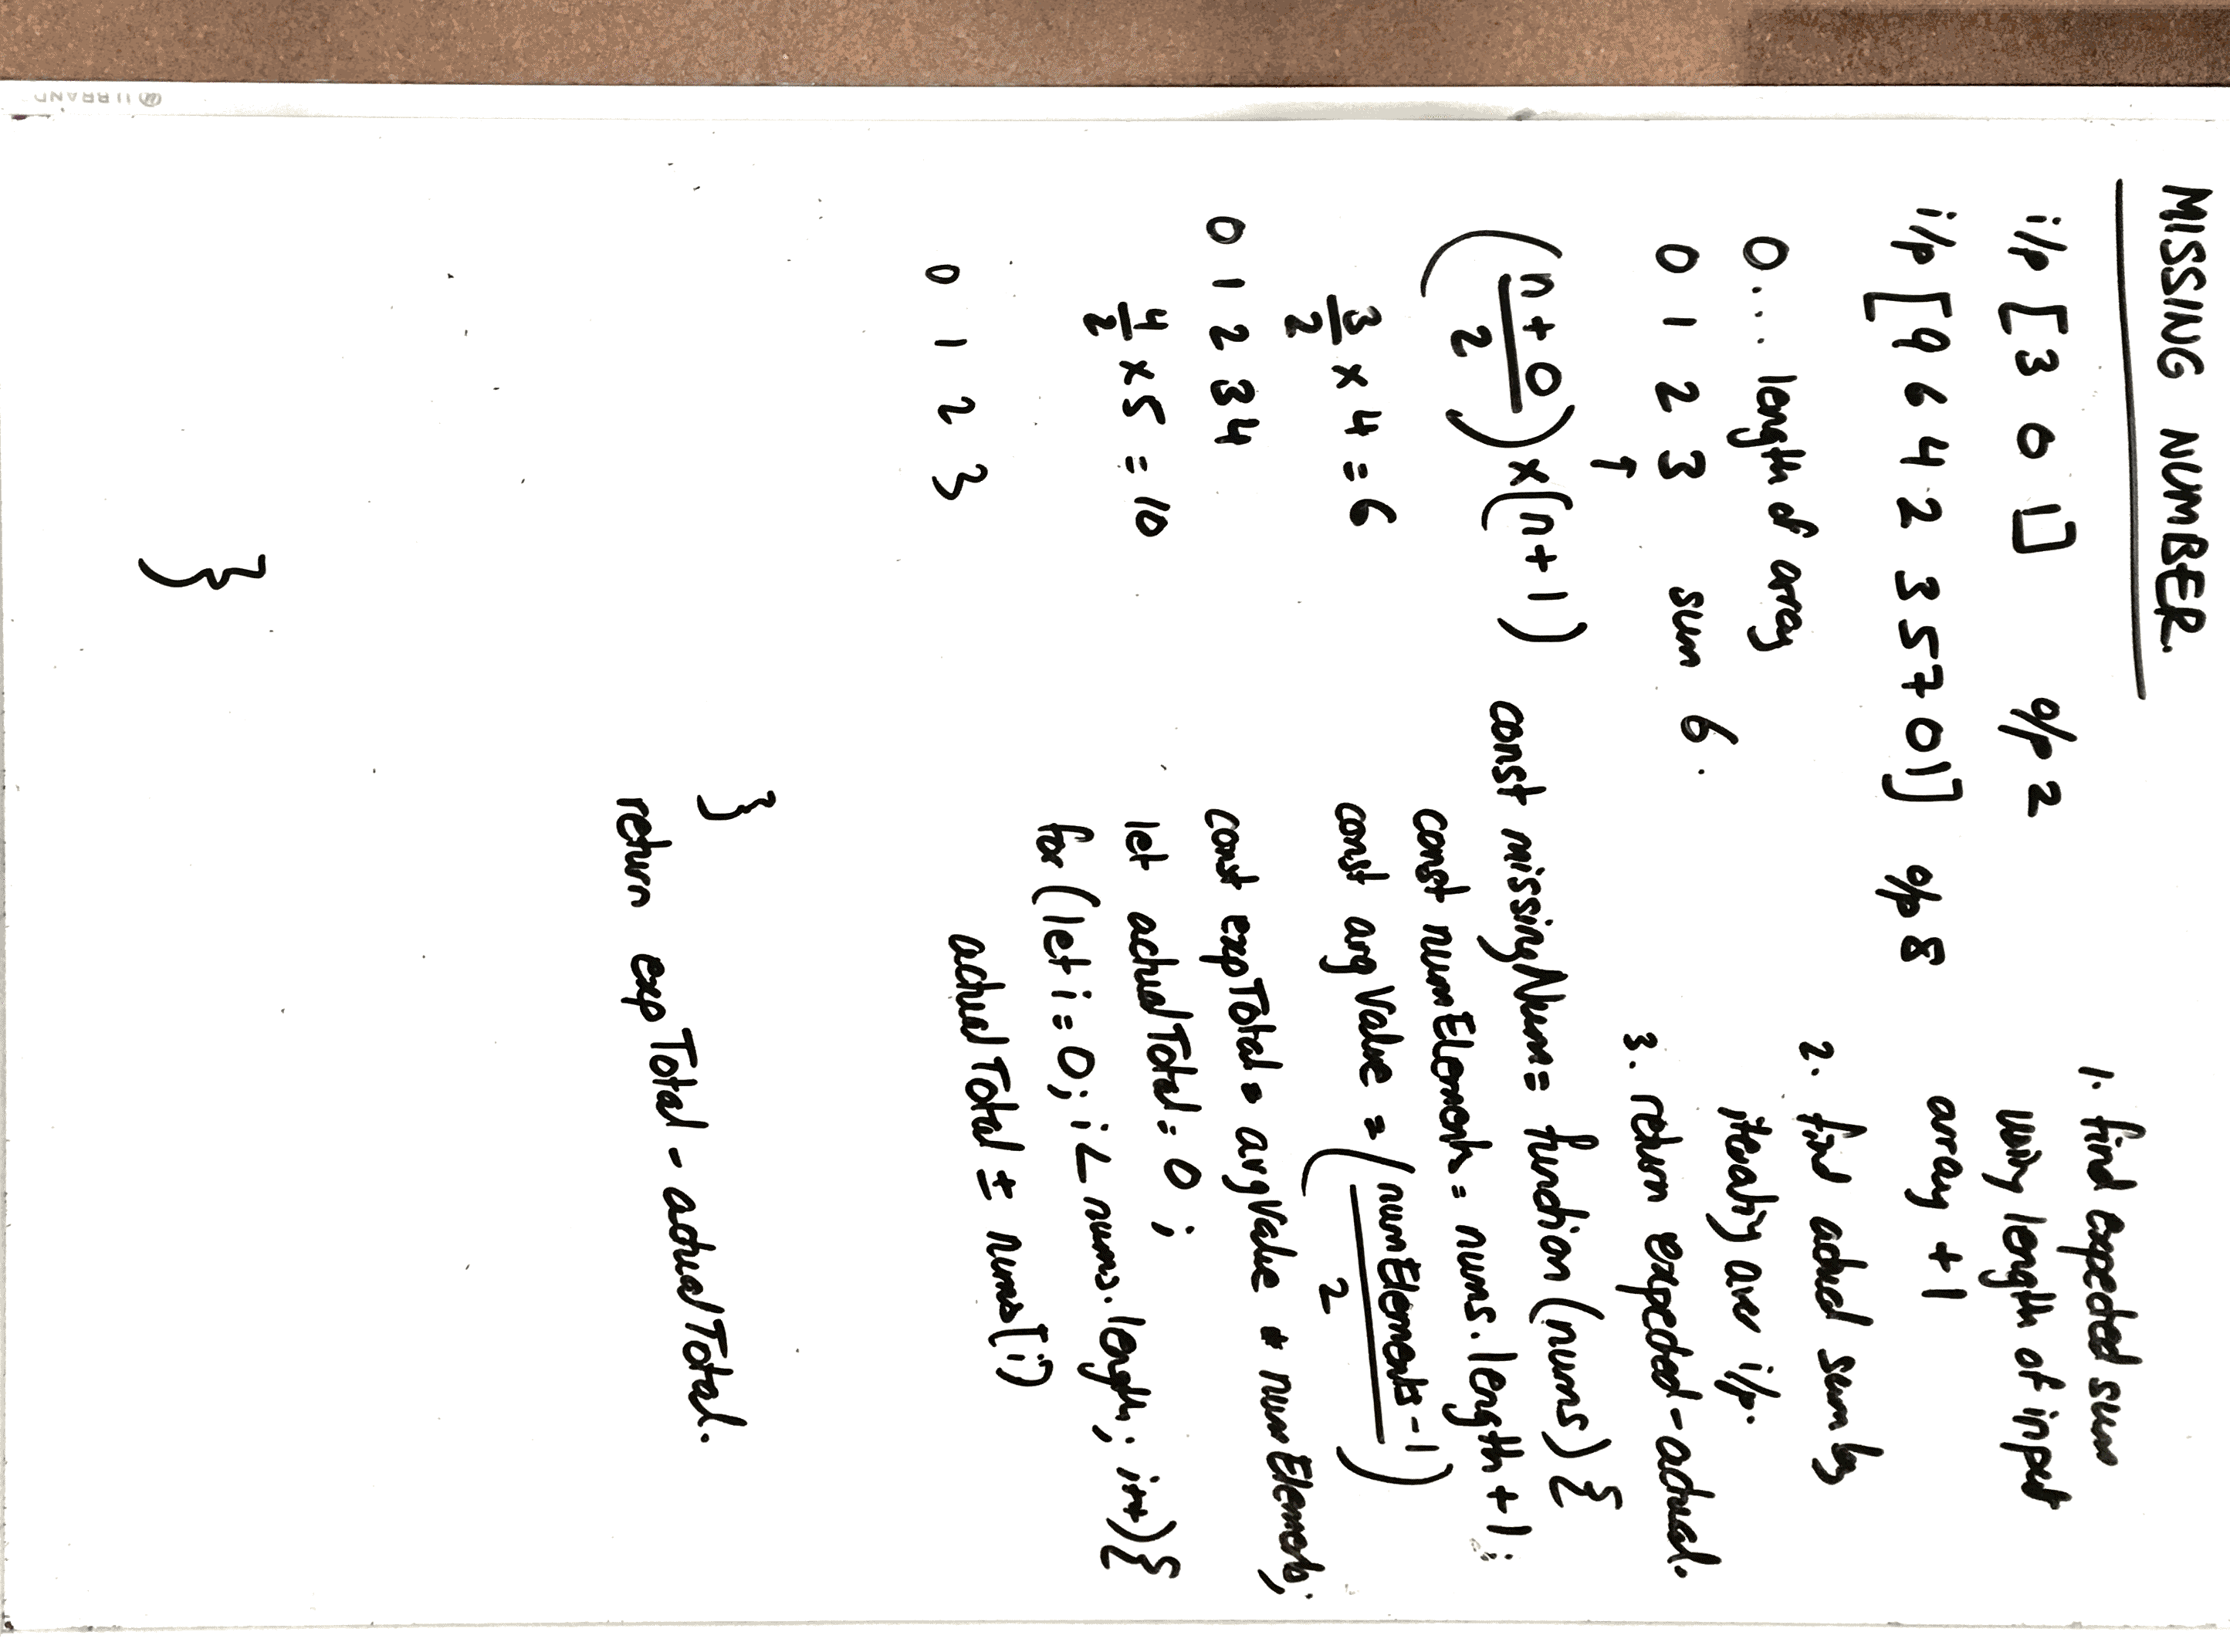 MISSING NUMBER.
i/p [3 0 1] o/p 2
i/p [9 6 4 2 3 5 7 0 1] o/p 8
0... length of array
0 1 2 3 sum 6.
↑
(n+0/2) x (n+1)
3/2 x 4 = 6
0 1 2 3 4
4/2 x 5 = 10
0 1 2 3
1. find expected sum
using length of input
array +1
2. find actual sum by
iterating over i/p.
3. return expected - actual.
const missingNum = function (nums) {
const numElements = nums.length + 1;
const avgValue = (numElements - 1 / 2)
const expTotal = avgValue * numElements;
let actualTotal = 0;
for (let i = 0; i < nums.length; i++) {
actualTotal += nums[i]
}
return expTotal - actualTotal.
}
@URBRAND